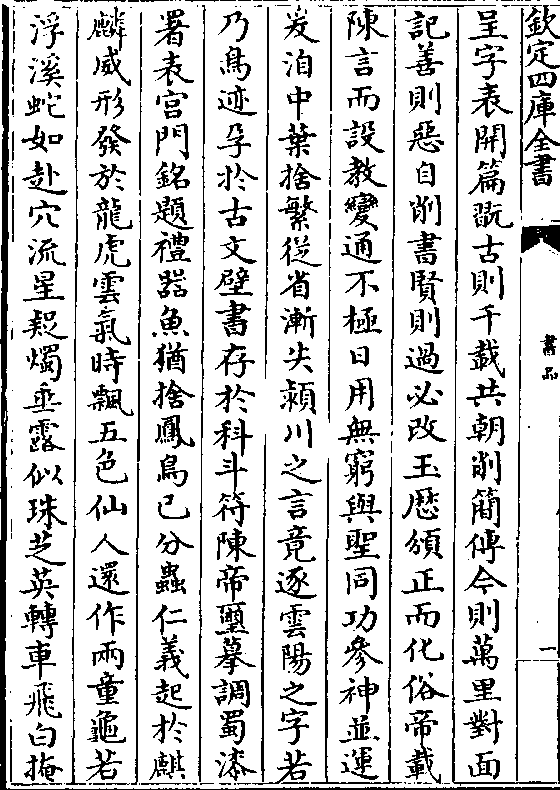 欽定四庫全書
書品
一
呈字表開篇翫古則千載共朝削簡傳今則萬里對面
記善則惡自削書賢則過必改玉歴頒正而化俗帝載
陳言而設教變通不極日用無窮與聖同功參神並運
爰洎中葉捨繁從省漸失潁川之言竟逐雲陽之字若
乃鳥迹孕於古文壁書存於科斗符陳帝璽摹調蜀漆
署表宮門銘題禮器魚猶捨鳳鳥已分蟲仁義起於麒
麟威形發於龍虎雲氣時飄五色仙人還作兩童龜若
浮溪蛇如赴穴流星疑燭垂露似珠芝英轉車飛白掩